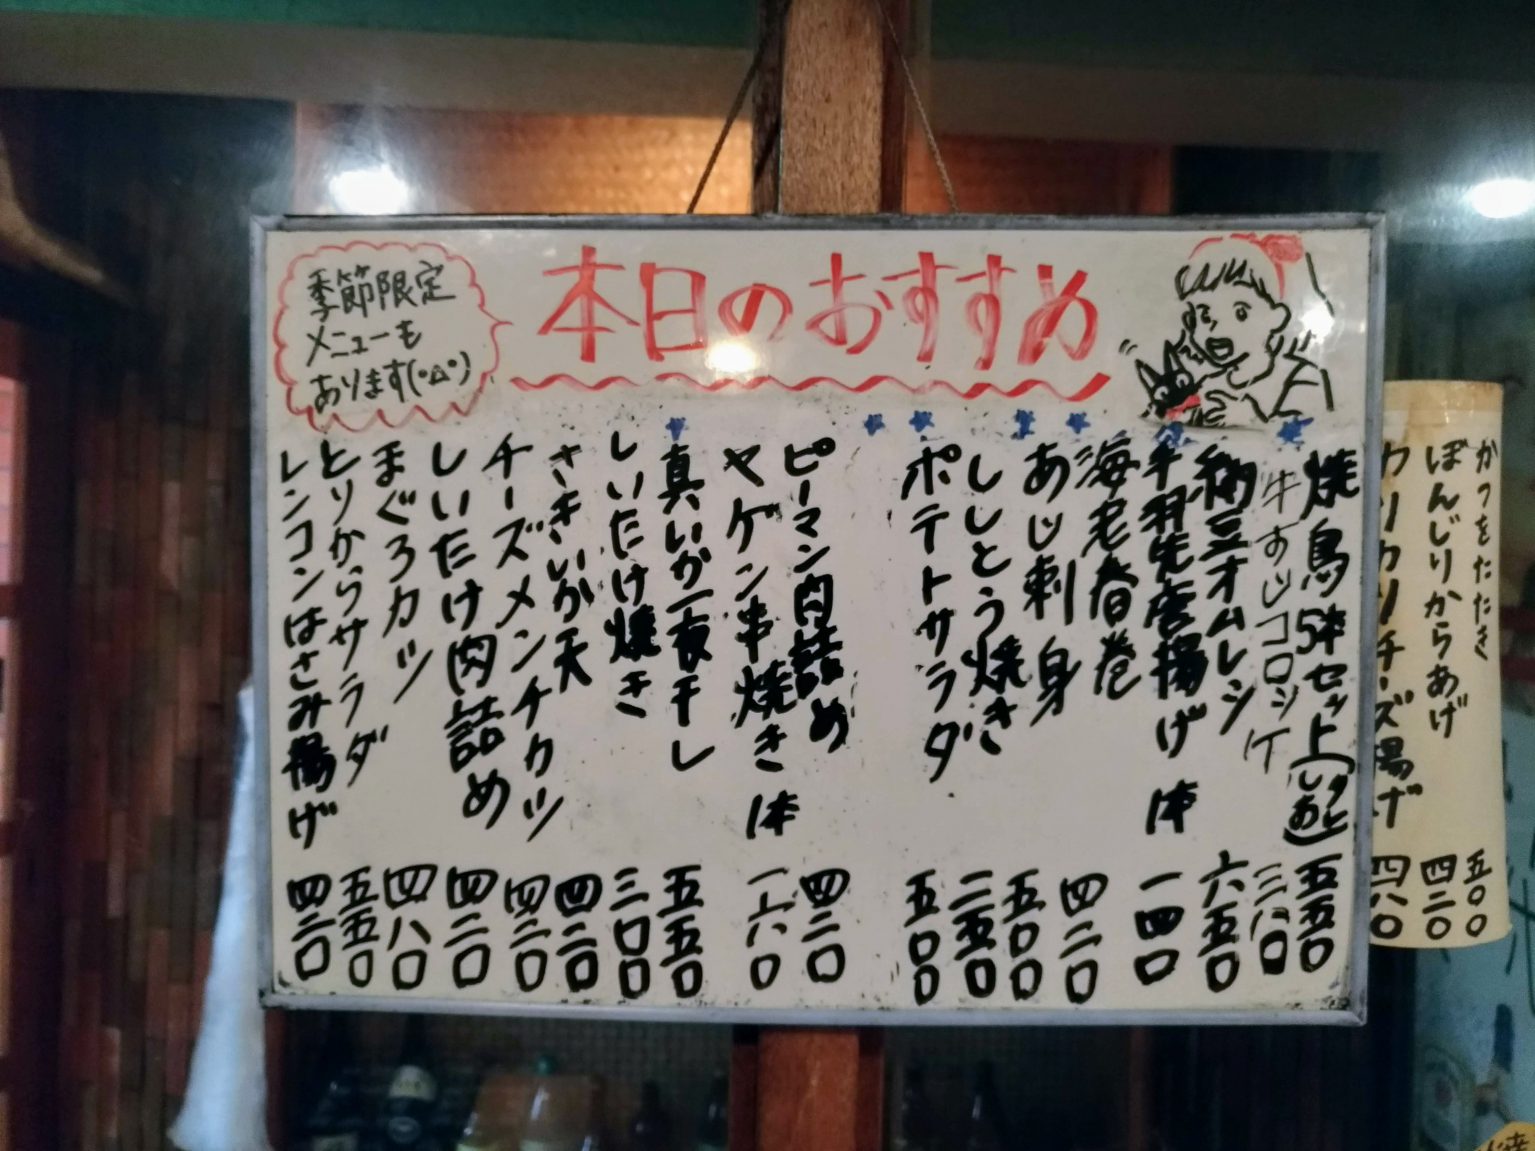 本日のおすすめ
季節限定
メニューも
あります(°△°)
焼鳥5本セット(タレ しお) 五五〇
牛すじコロッケ 三八〇
納豆オムレツ 六五〇
手羽先唐揚げ 一本 一四〇
海老春巻 四二〇
あじ刺身 五〇〇
ししとう焼き 二五〇
ポテトサラダ 五〇〇
ピーマン肉詰め 四二〇
ヤゲン串焼き 一本 一六〇
真いか一夜干し 五五〇
しいたけ焼き 三〇〇
さきいか天 四二〇
チーズメンチカツ 四二〇
しいたけ肉詰め 四二〇
まぐろカツ 四八〇
とりからサラダ 五五〇
レンコンはさみ揚げ 四二〇
かつをたたき 五〇〇
ぼんじりからあげ 四二〇
カリカリチーズ揚げ 四八〇